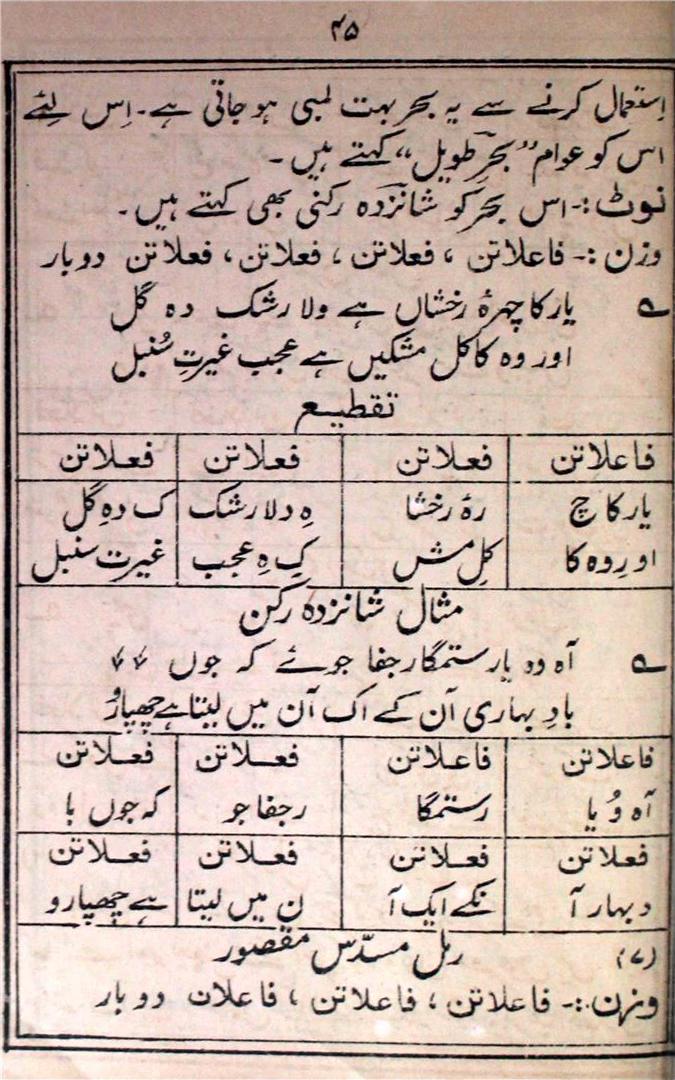 ۴۵
اِستعمال کرنے سے یہ بحر بہت لمبی ہو جاتی ہے۔ اِس لئے
اس کو عوام ”بحرِ طویل“ کہتے ہیں۔
نوٹ:۔ اس بحر کو شانزدہ رکنی بھی کہتے ہیں۔
وزن :۔ فاعلاتن ، فعلاتن ، فعلاتن، فعلاتن دو بار
یار کا چہرۂ رخشاں ہے ولا رشک دہ گل
اور وہ کاکل مشکیں ہے عجب غیرتِ سُنبل
تقطیع
فاعلاتن فعلاتن فعلاتن فعلاتن
یار کا چ رۂ رخشا ہِ دلا رشک ک دہِ گل
اورِ وہ کا کلِ مش کِ ہِ عجب غیرت سنبل
مثال شانزدہ رکن
آہ وہ یار ستمگار جفا جوئے کہ جوں
بادِ بہاری آن کے اک آن میں لیتا ہے چھپا رو
فاعلاتن فاعلاتن فعلاتن فعلاتن
آہ وُ یا رستمگا رجفا جو کہ جوں با
فعلاتن فعلاتن فعلاتن فعلاتن
دبہار آ نکے ایک آ ن میں لیتا ہے چھپا رو
(۷) رمل مسدّس مقصور
وزن:۔ فاعلاتن ، فاعلاتن ، فاعلان دو بار